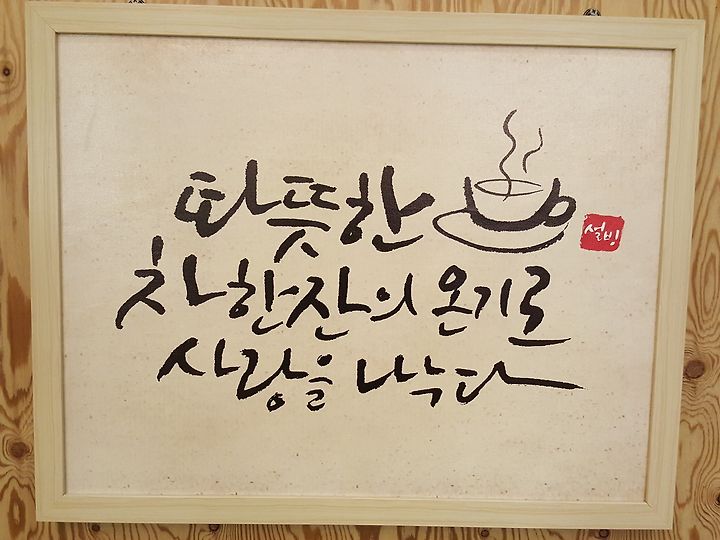 따뜻한
설빙
차 한잔의 온기로
사랑을 나누다